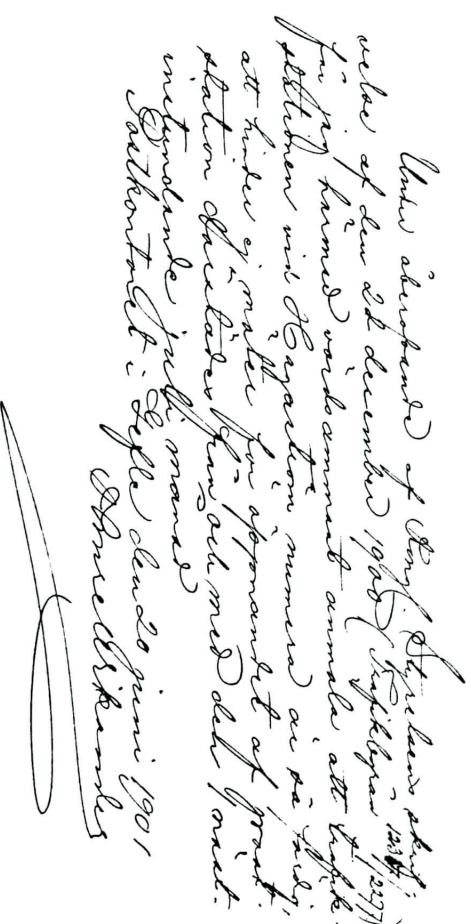 Under åberopande af Kongl. Styrelsens skrif-
velse af den 28 december 1900 (Trafikbyrån
får jag härmed vördsammast anmäla att trafik-
platsen vid Hagaström numera är så färdig
att hinder ej möter för öppnandet af post-
station därstädes från och med den 1 näst-
instundande juli månad
Postkontoret i Gefle den 20 juni 1901